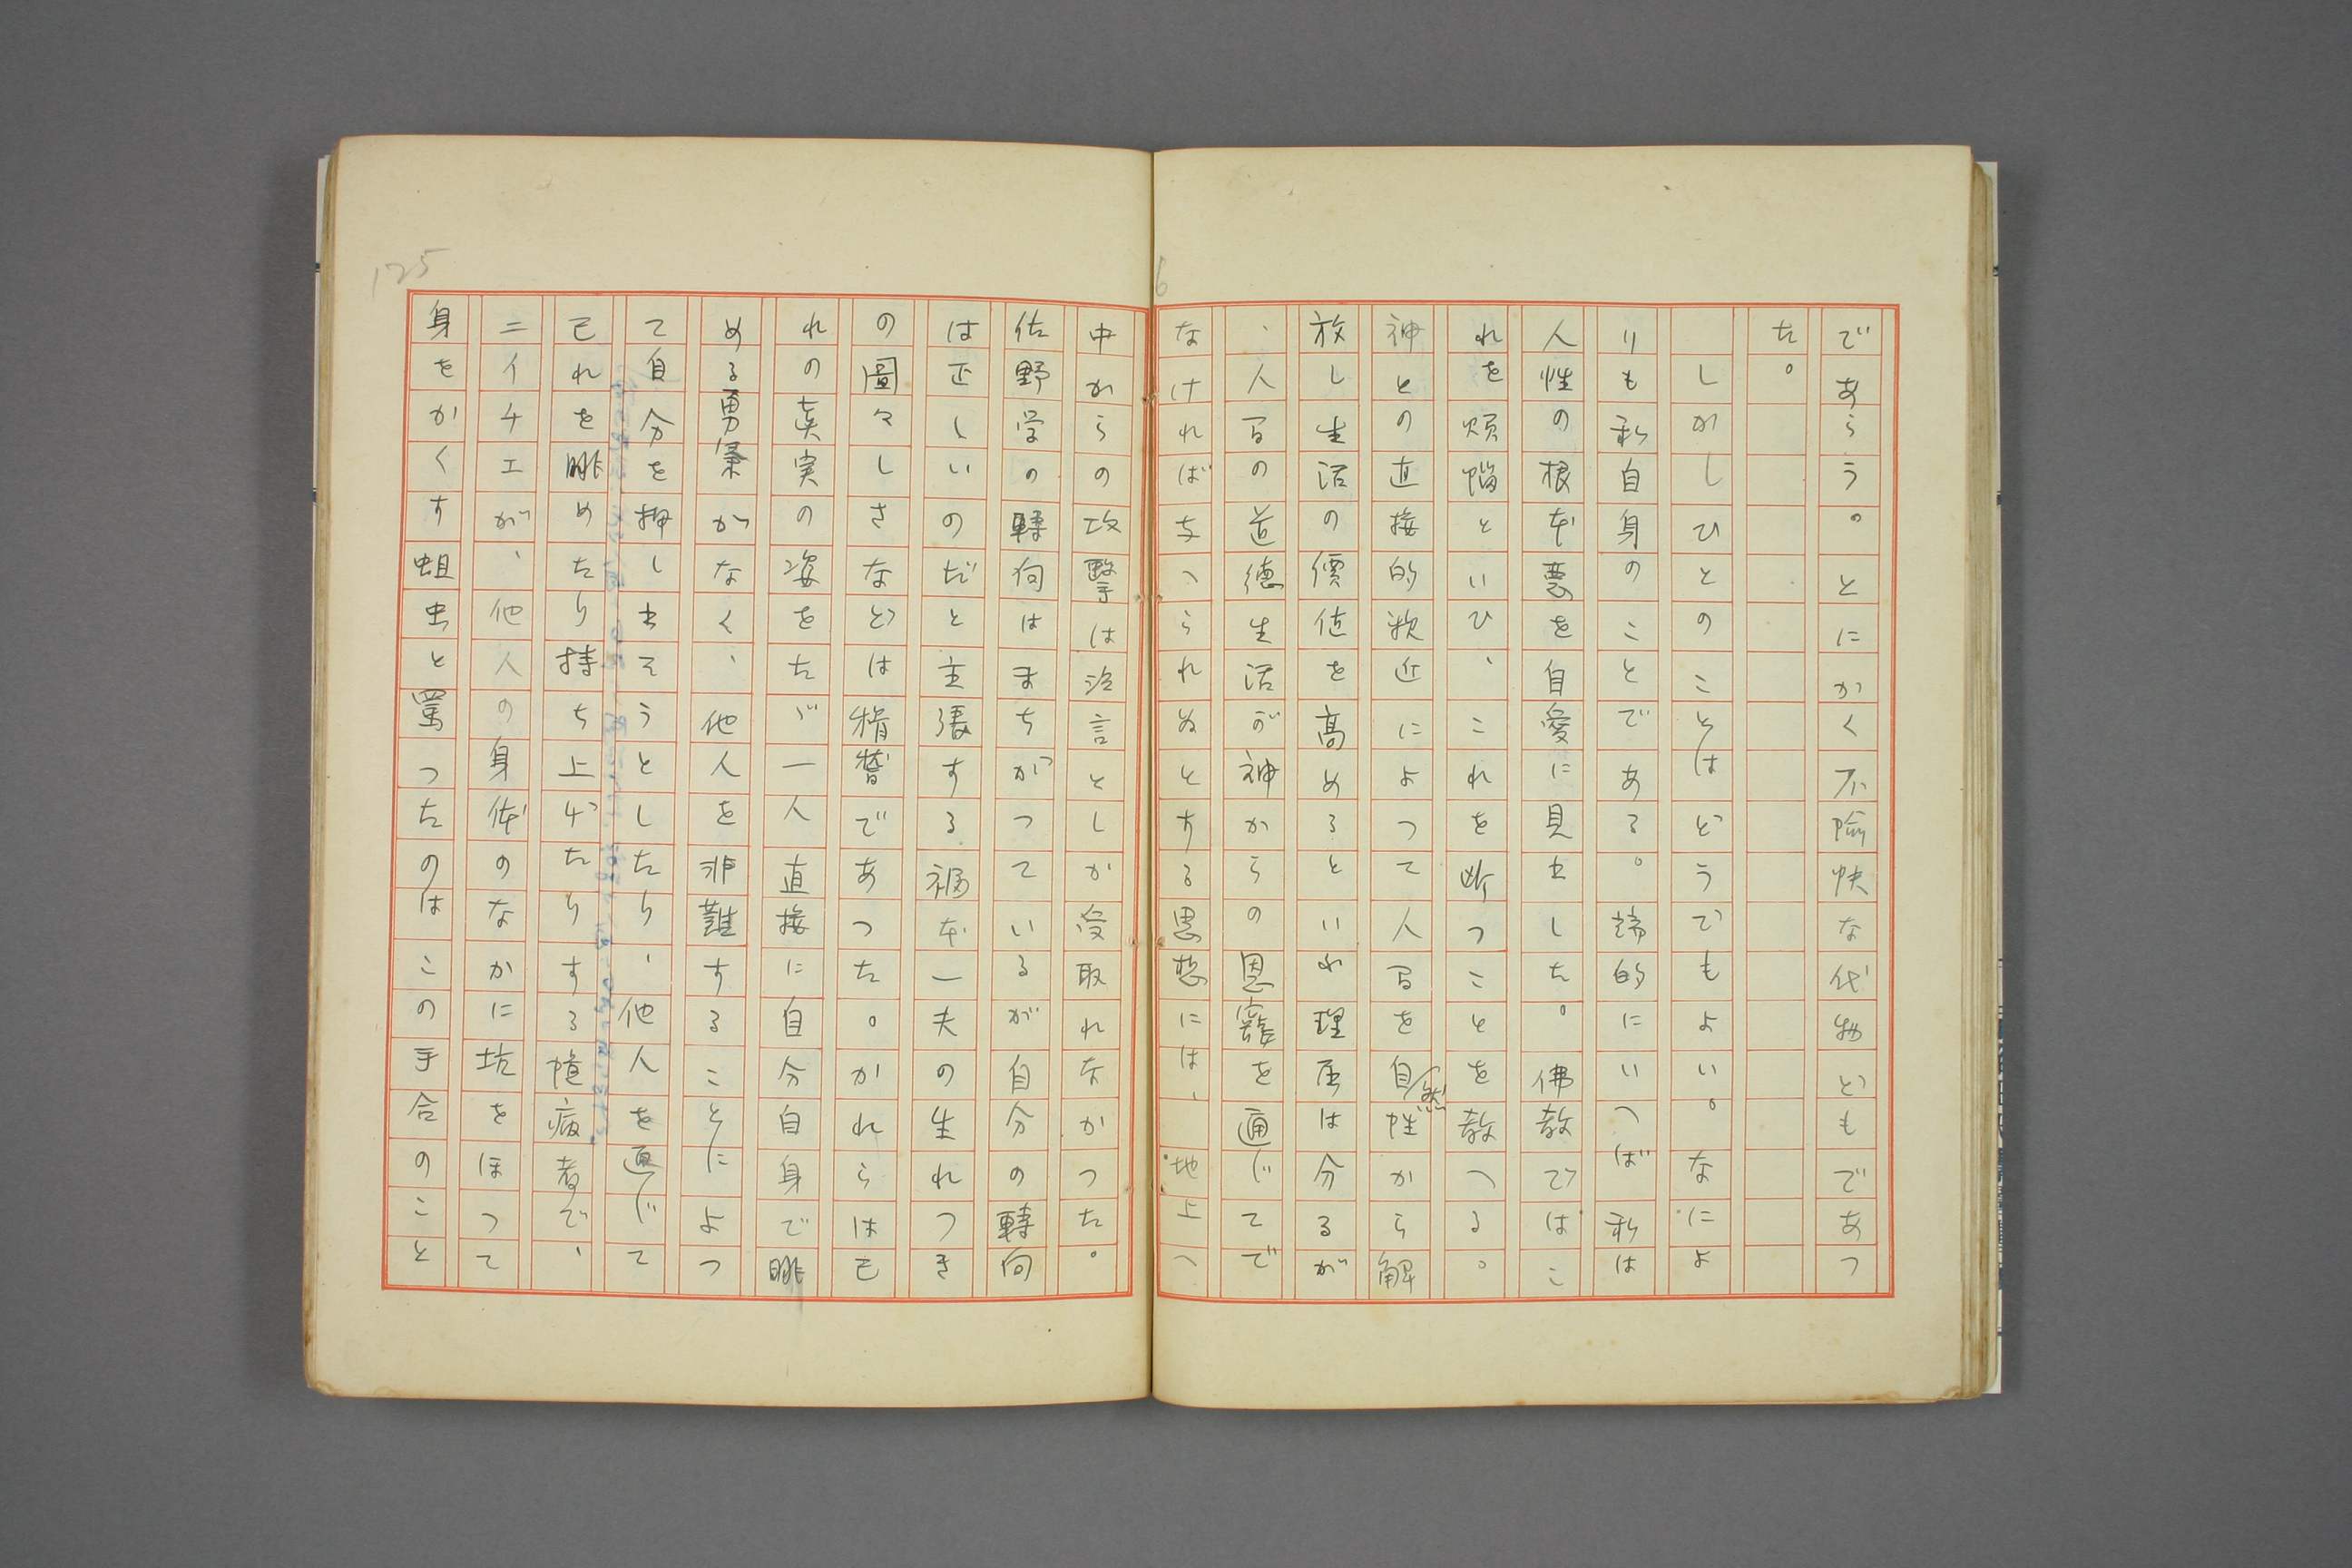 であらう。とにかく不愉快な代物どもであつ
た。
しかしひとのことはどうでもよい。なによ
りも私自身のことである。端的にいへば私は
人性の根本悪を自愛に見出した。佛教ではこ
れを煩悩といひ、これを断つことを教へる。
神との直接的親近によつて人間を自然性から解
放し生活の價値を高めるといふ理屈は分るが
、人間の道徳生活が神からの恩寵を通じてで
なければ与へられぬとする思想には、地上へ
中からの攻撃は泣言としか受取れなかつた。
佐野学の轉向はまちがつているが自分の轉向
は正しいのだと主張する福本一夫の生れつき
の圖々しさなどは滑稽であつた。かれらは己
れの真実の姿をたゞ一人直接に自分自身で眺
める勇氣がなく、他人を非難することによつ
て自分を押し出そうとしたり、他人を通じて
己れを眺めたり持ち上げたりする臆病者で、
ニイチエが、他人の身体のなかに坑をほつて
身をかくす蛆虫と罵つたのはこの手合のこと
125
6